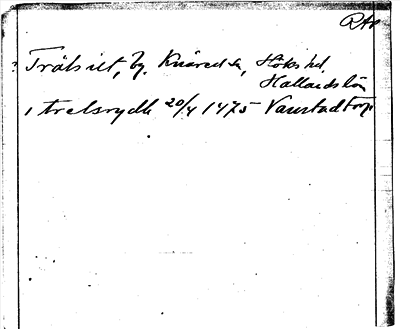 RAp
? Träbsilt, by. Knäred sn, Höks hd,
Hallands län
i trelsrydh 20/4 1475 Vanstadtorp